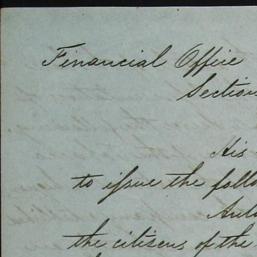 Financial Office
Section
His
to issue the follo
the citizens of the